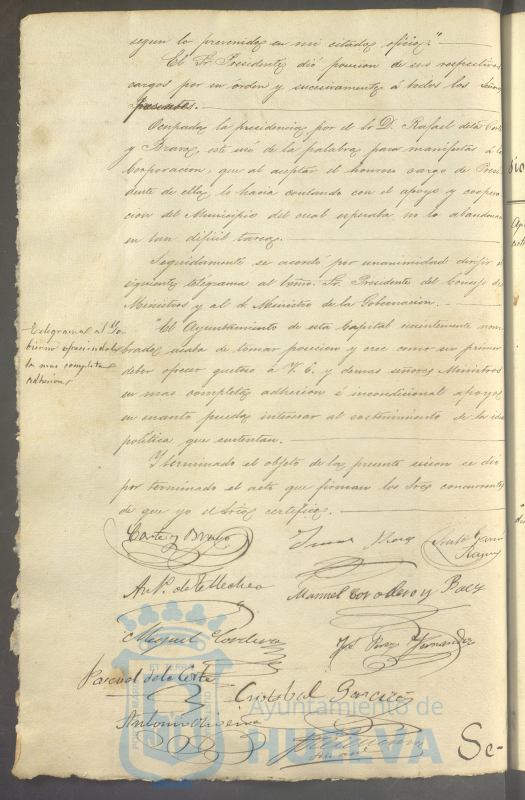 segun lo prevenido en mi citado oficio."
El Sr. Presidente dió posesion de sus respectivos
cargos por su órden y sucesivamente á todos los Señores
presentes.
Ocupada la presidencia por el Sr D. Rafael de la Corte
y Bravo, este usó de la palabra para manifestar á la
Corporacion, que al aceptar el honroso cargo de Presi
dente de ella, lo hacia contando con el apoyo y coopera
cion del Municipio del cual esperaba no lo abandonara
en tan dificil tarea.
Seguidamente se acordó por unanimidad dirijir el
siguiente telegrama al Excmo. Sr. Presidente del Consejo de
Ministros y al Ministro de la Gobernacion.
"El Ayuntamiento de esta Capital recientemente nom
brado, acaba de tomar posesion y cree como su primer
deber ofrecer gustoso á V. E. y demas señores Ministros
su mas completa adhesion é incondicional apoyo
en cuanto pueda interesar al sostenimiento de la idea
politica que sustentan.
Y terminado el objeto de la presente sesion se dió
por terminado el acto que firman los Sres concurrentes
de que yo el Srio certifico.
Telegramas al Go
bierno ofreciendole
la mas completa
adhesion
Corte y Bravo
Manuel Cordero y Baez
Miguel Cordero
José Perez Fernandez
Pascual de la Corte
Cristobal Garcia
Antonio Oliveira
Se-
Ayuntamiento de
HUELVA